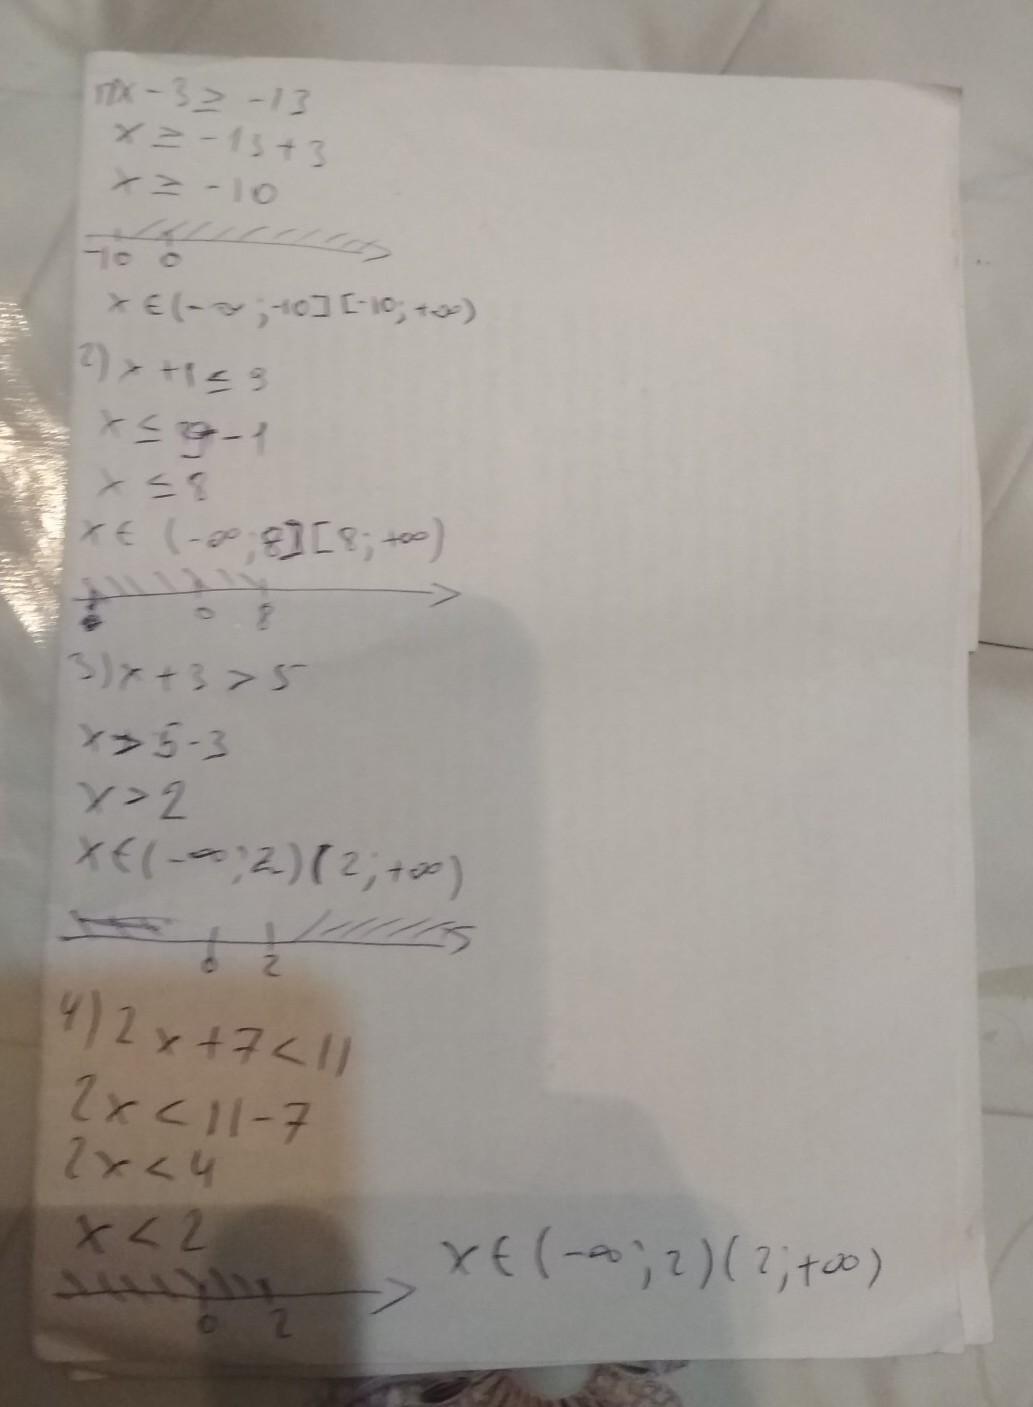 1) x - 3 ≥ -13
x ≥ -13 + 3
x ≥ -10
-10 0
x ∈ (-∞; -10] [-10; +∞)
2) x + 1 ≤ 9
x ≤ 9 - 1
x ≤ 8
x ∈ (-∞; 8] [8; +∞)
0 8
3) x + 3 > 5
x > 5 - 3
x > 2
x ∈ (-∞; 2) (2; +∞)
0 2
4) 2x + 7 < 11
2x < 11 - 7
2x < 4
x < 2
x ∈ (-∞; 2) (2; +∞)
0 2